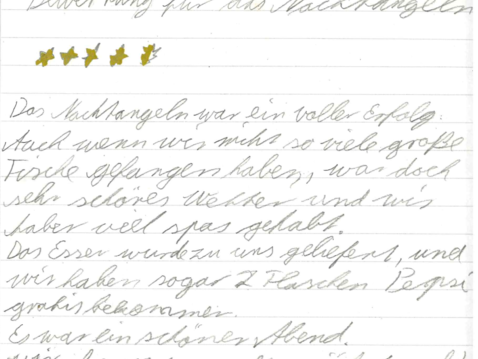 Bewertung für das Nachtangeln
Das Nachtangeln war ein voller Erfolg.
Auch wenn wir nicht so viele große
Fische gefangen haben, war doch
sehr schönes Wetter und wir
haben viel spas gehabt.
Das Essen wurde zu uns geliefert, und
wir haben sogar 2 Flaschen Pepsi
gratis bekommen.
Es war ein schöner Abend.